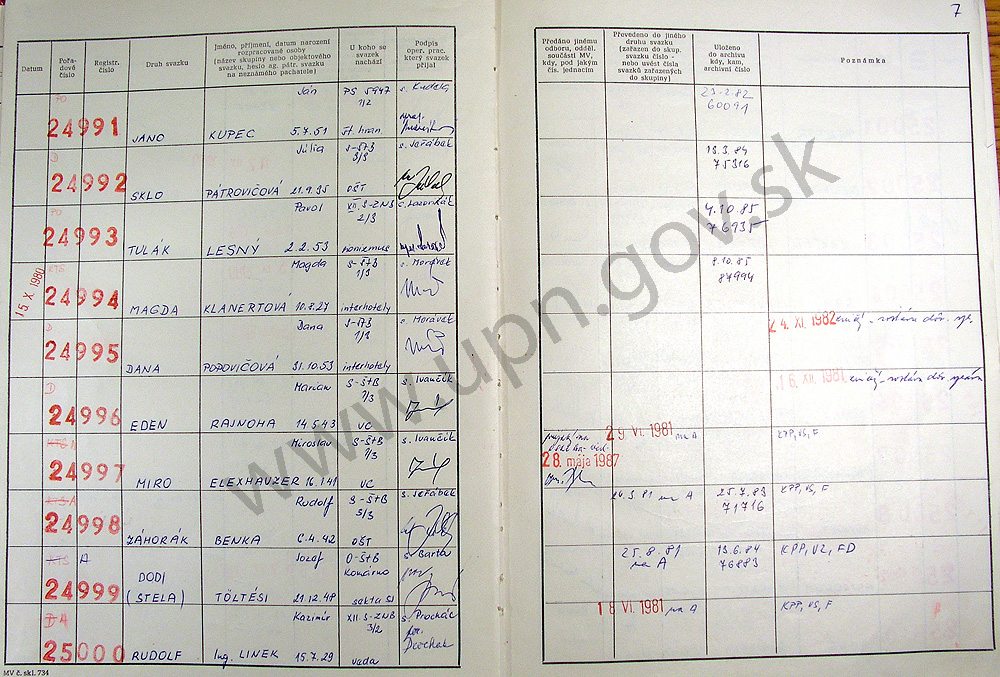 7
Datum
Pořadové číslo
Registr. číslo
Druh svazku
Jméno, příjmení, datum narození rozpracované osoby
(název skupiny nebo objektového svazku, heslo ag. pátr. svazku na neznámého pachatele)
U koho se svazek nachází
Podpis oper. prac. který svazek přijal
Předáno jinému odboru, odděl. součásti MV, kdy, pod jakým čís. jednacím
Převedeno do jiného druhu svazku (zařazen do skup. svazku číslo - nebo uvést čísla svazků zařazených do skupiny)
Uloženo do archivu kdy, kam, archivní číslo
Poznámka
15. X. 1980
PO
24991 JANO KUPEC Ján 5.7.51 PS 5947 1/2
23.2.82
60091
D
24992 SKLO PÁTROVIČOVÁ Júlia 21.9.35 S-ŠtB 3/3 OŠT s. Jeřábek
13.3.84
75316
PO
24993 TULÁK LESNÝ Pavol 2.2.53 XII.S-ZNB 2/3
4.10.85
76935
24994 MAGDA KLANERTOVÁ Magda 10.8.27 S-ŠtB 1/3 interhotely s. Morávek
8.10.85
87994
D
24995 DANA POPOVIČOVÁ Dana 31.10.53 S-ŠtB 1/3 interhotely s. Morávek
24. XI. 1982
D
24996 EDEN RAJNOHA Marián 14.5.43 S-ŠtB 7/3 VC s. Ivančík
16. XII. 1981
24997 MIRO ELEXHAUZER Miroslav 16.1.41 S-ŠtB 7/3 VC s. Ivančík
28. mája 1987
29. VI. 1981 na A
KPP, VS, F
24998 ZÁHORÁK BENKA Rudolf 6.4.42 S-ŠtB 5/3 OŠT s. Jeřábek
24.3.81 na A
25.7.83
71716
KPP, VS, F
KTS A
24999 DODI (STELA) TÖLTÉSI Jozef 21.12.48 O-ŠtB Komárno s. Barta
25.8.81 na A
13.6.84
76883
KPP, VZ, FD
25000 RUDOLF Ing. LINEK Kazimír 15.7.29 XII. S-ZNB 3/2 veda
18 VI. 1981 na A
KPP, VS, F
MV č. skl. 734
www.upn.gov.sk